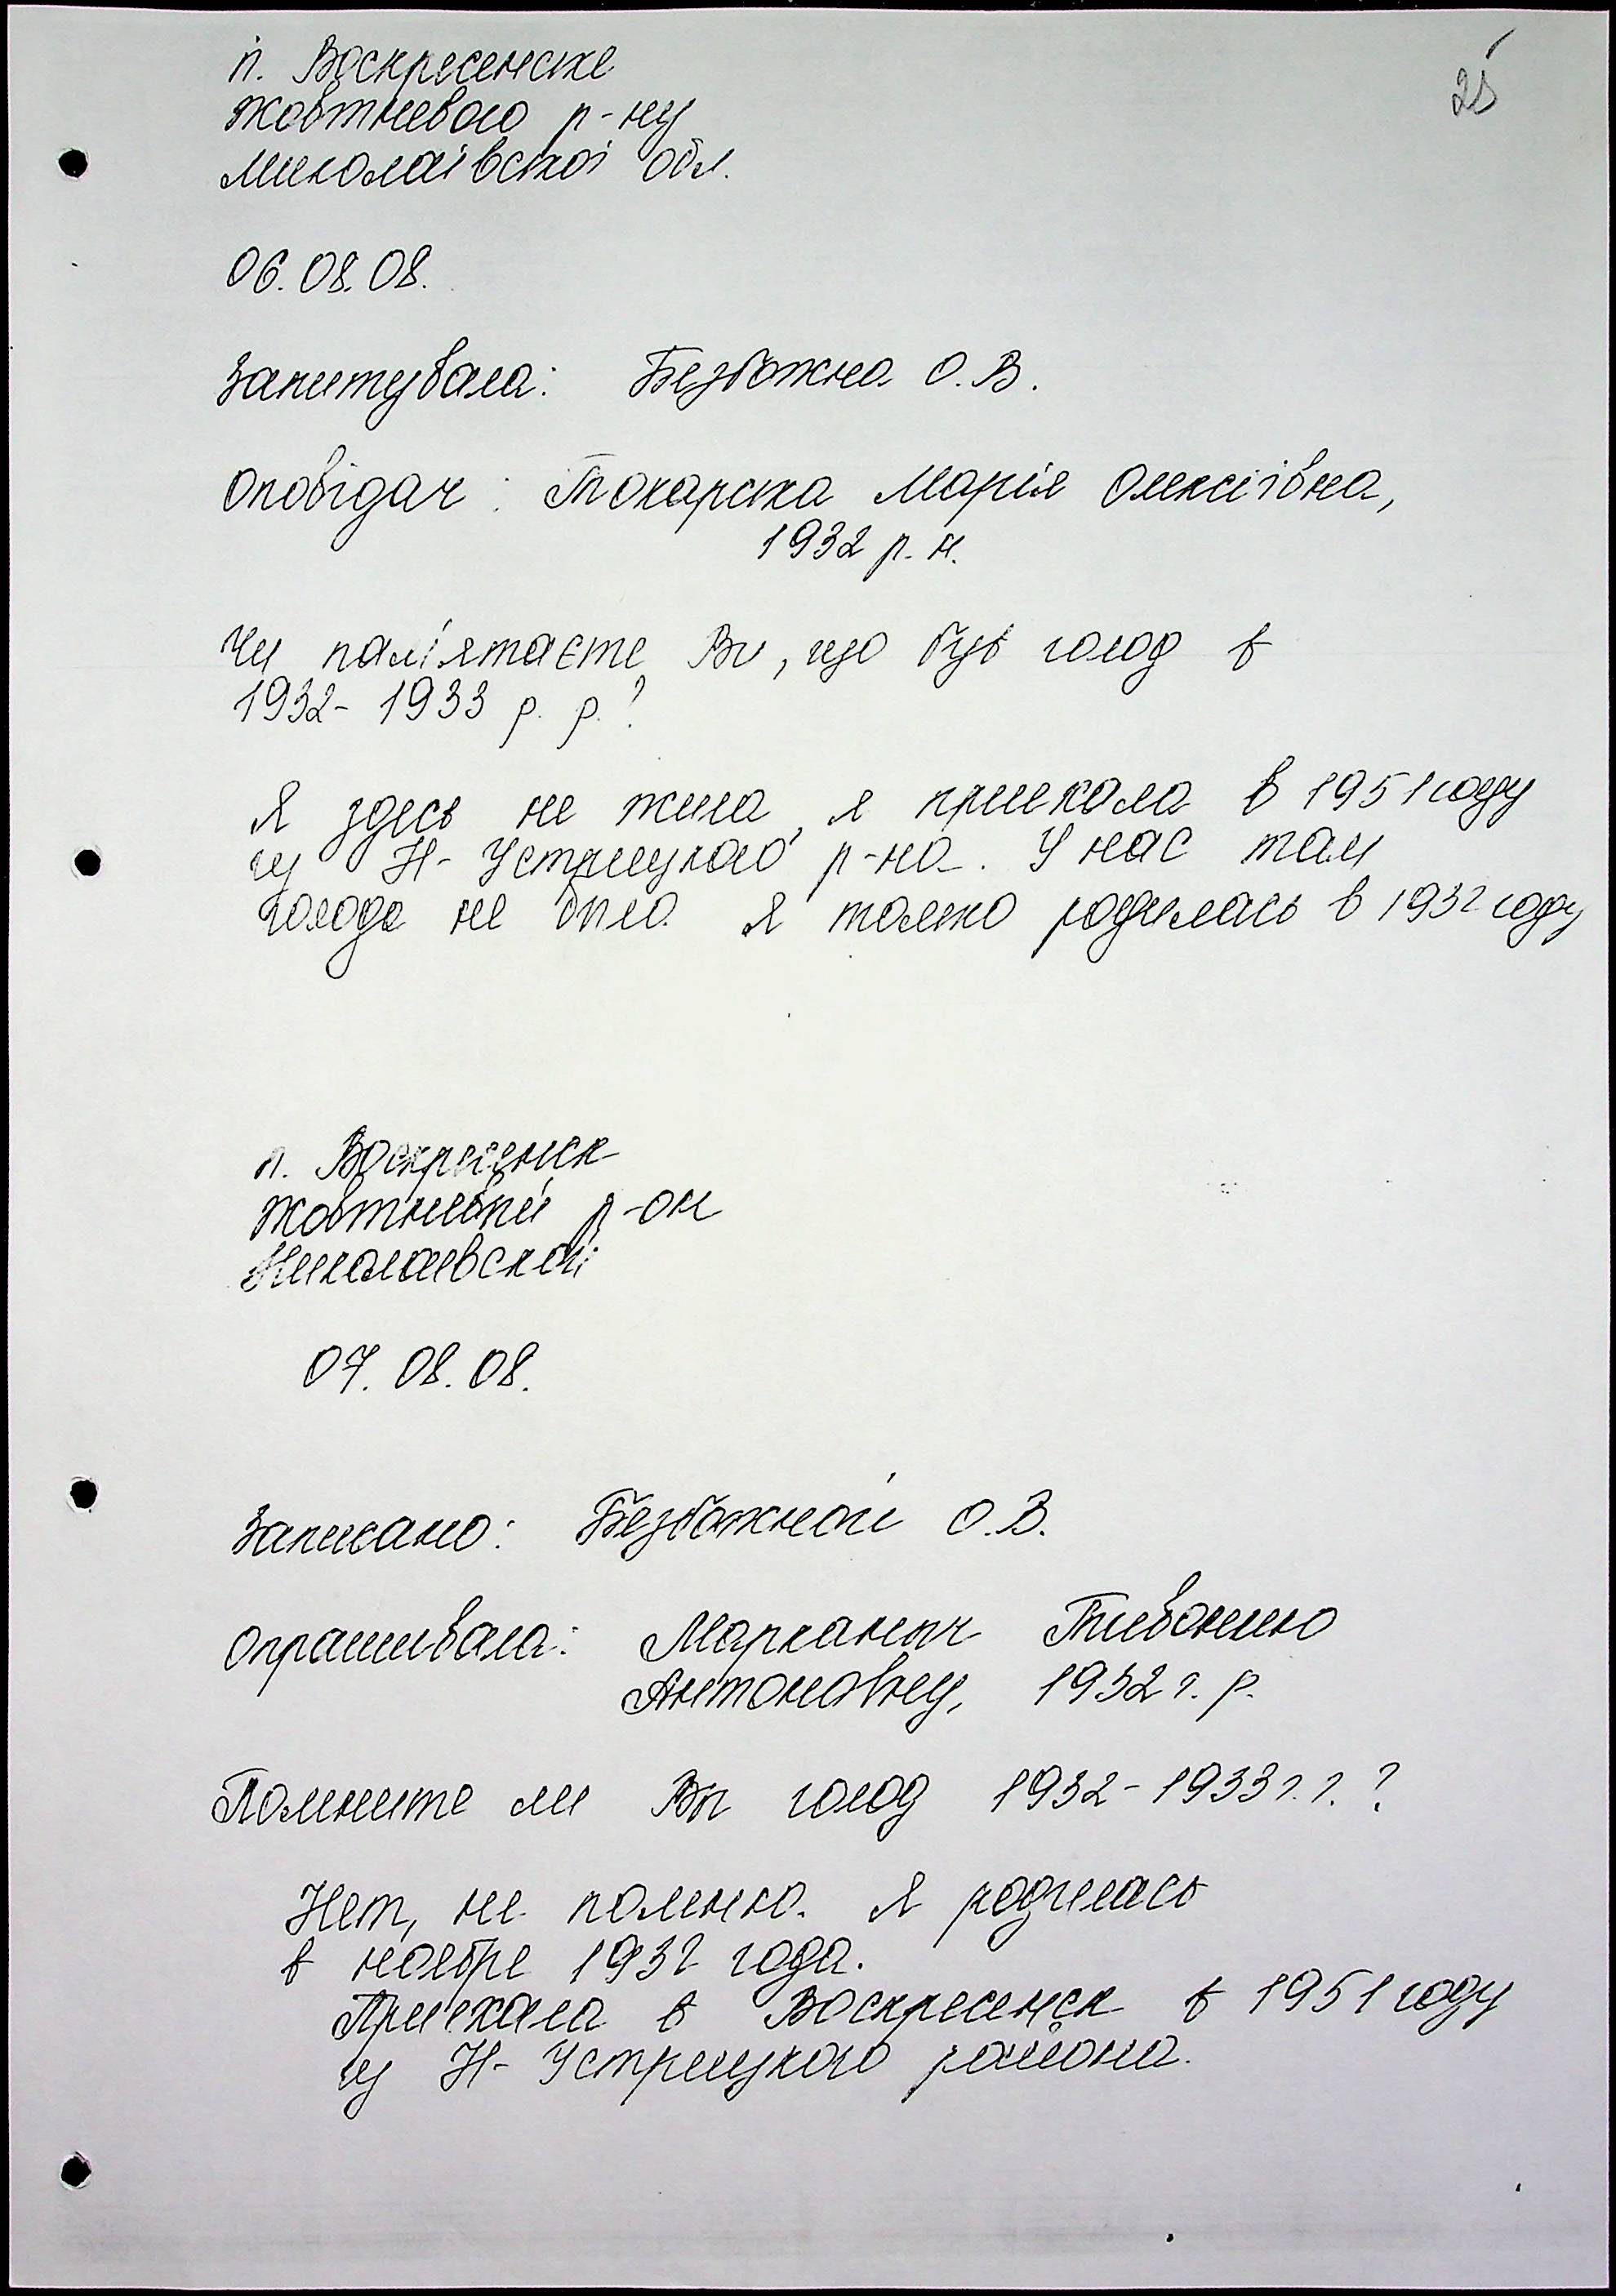 25
п. Воскресенське
Жовтневого р-ну
Миколаївської обл.
06.08.08.
Запитувала: Безбожна О.В.
Оповідач: Токарська Марія Олексіївна,
1932 р.н.
Чи пам'ятаєте Ви, що був голод в
1932-1933 р.р.?
Я здесь не жила, я приехала в 1951 году
из Н-Устрицкого р-на. У нас там
голода не было. Я только родилась в 1932 году
п. Воскресенск
Жовтневый р-он
Николаевской
07.08.08.
Записано: Безбожной О.В.
Опрашивала: Марканыч
Антоновну, 1932 г.р.
Помните ли Вы голод 1932-1933 г.г.?
Нет, не помню. Я родилась
в ноябре 1932 года.
Приехала в Воскресенск в 1951 году
из Н-Устрицкого района.